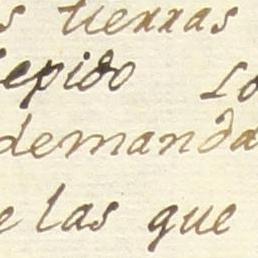 s tierras
lepido Lo
demanda
e las que